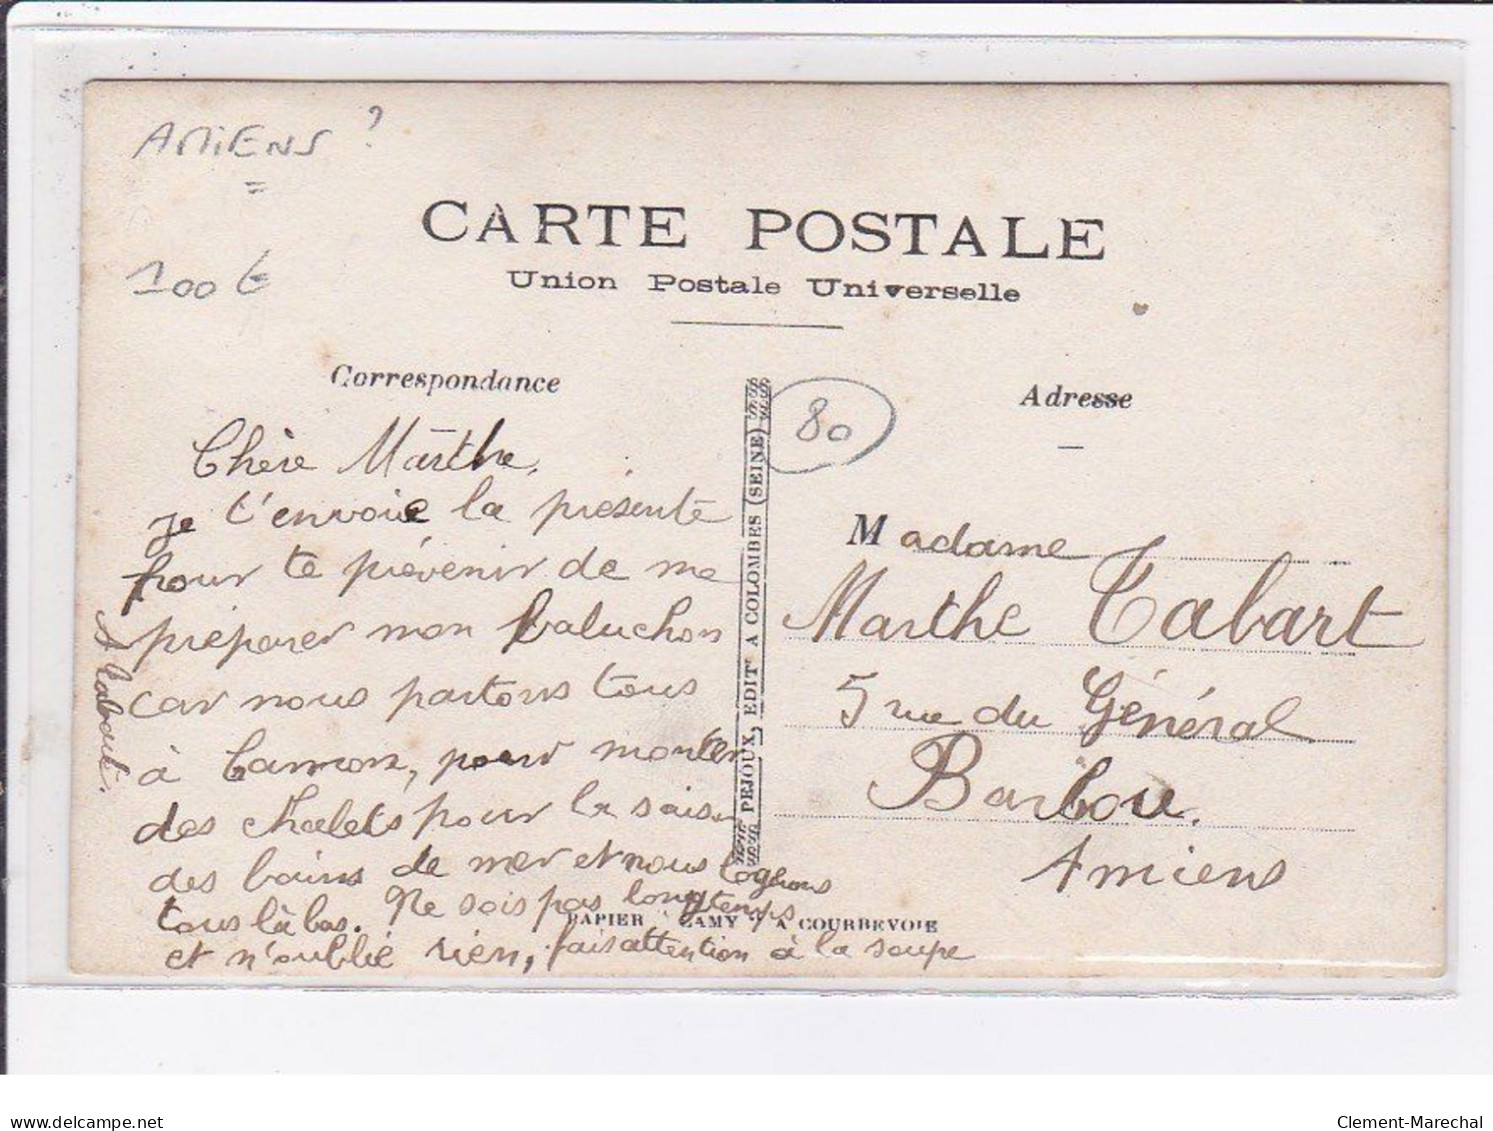 AMIENS ?
100 €
CARTE POSTALE
Union Postale Universelle
Correspondance
Chère Marthe,
je t'envoie la présente
pour te prévenir de me
préparer mon baluchon
car nous partons tous
à Camon, pour monter
des chalets pour la saison
des bains de mer et nous logerons
tous là bas. Ne sois pas longtemps
et n'oublie rien, fais attention à la soupe
A Tabart.
PEJOUX, EDITr A COLOMBES (SEINE)
PAPIER "LAMY" A COURBEVOIE
80
Adresse
Madame
Marthe Tabart
5 rue du Général
Barbou.
Amiens
delcampe.net
Clement-Marechal